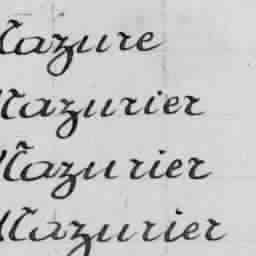 Mazure
Mazurier
Mazurier
Mazurier